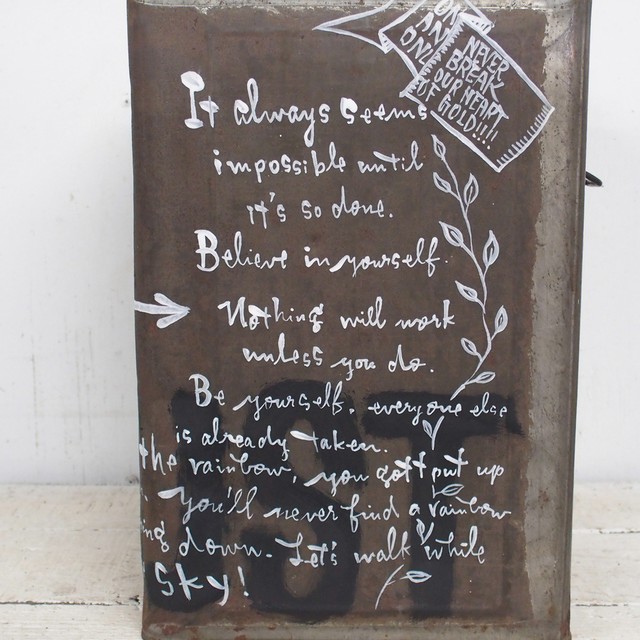 ON
AN
ONL
NEVER
BREAK
OUR HEART
OF GOLD!!!!
It always seems
impossible until
it's so done.
Believe in yourself.
Nothing will work
unless you do.
Be yourself. everyone else
is already taken.
the rainbow, you gott put up
You'll never find a rainbow
ing down. Let's walk while
Sky!
IST